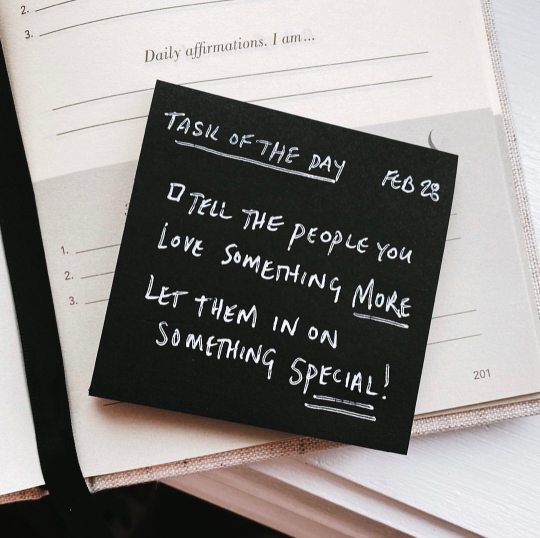 2.
3.
Daily affirmations. I am...
TASK OF THE DAY
FEB 28
TELL THE PEOPLE YOU
LOVE SOMETHING MORE
LET THEM IN ON
SOMETHING SPECIAL!
1.
2.
3.
201